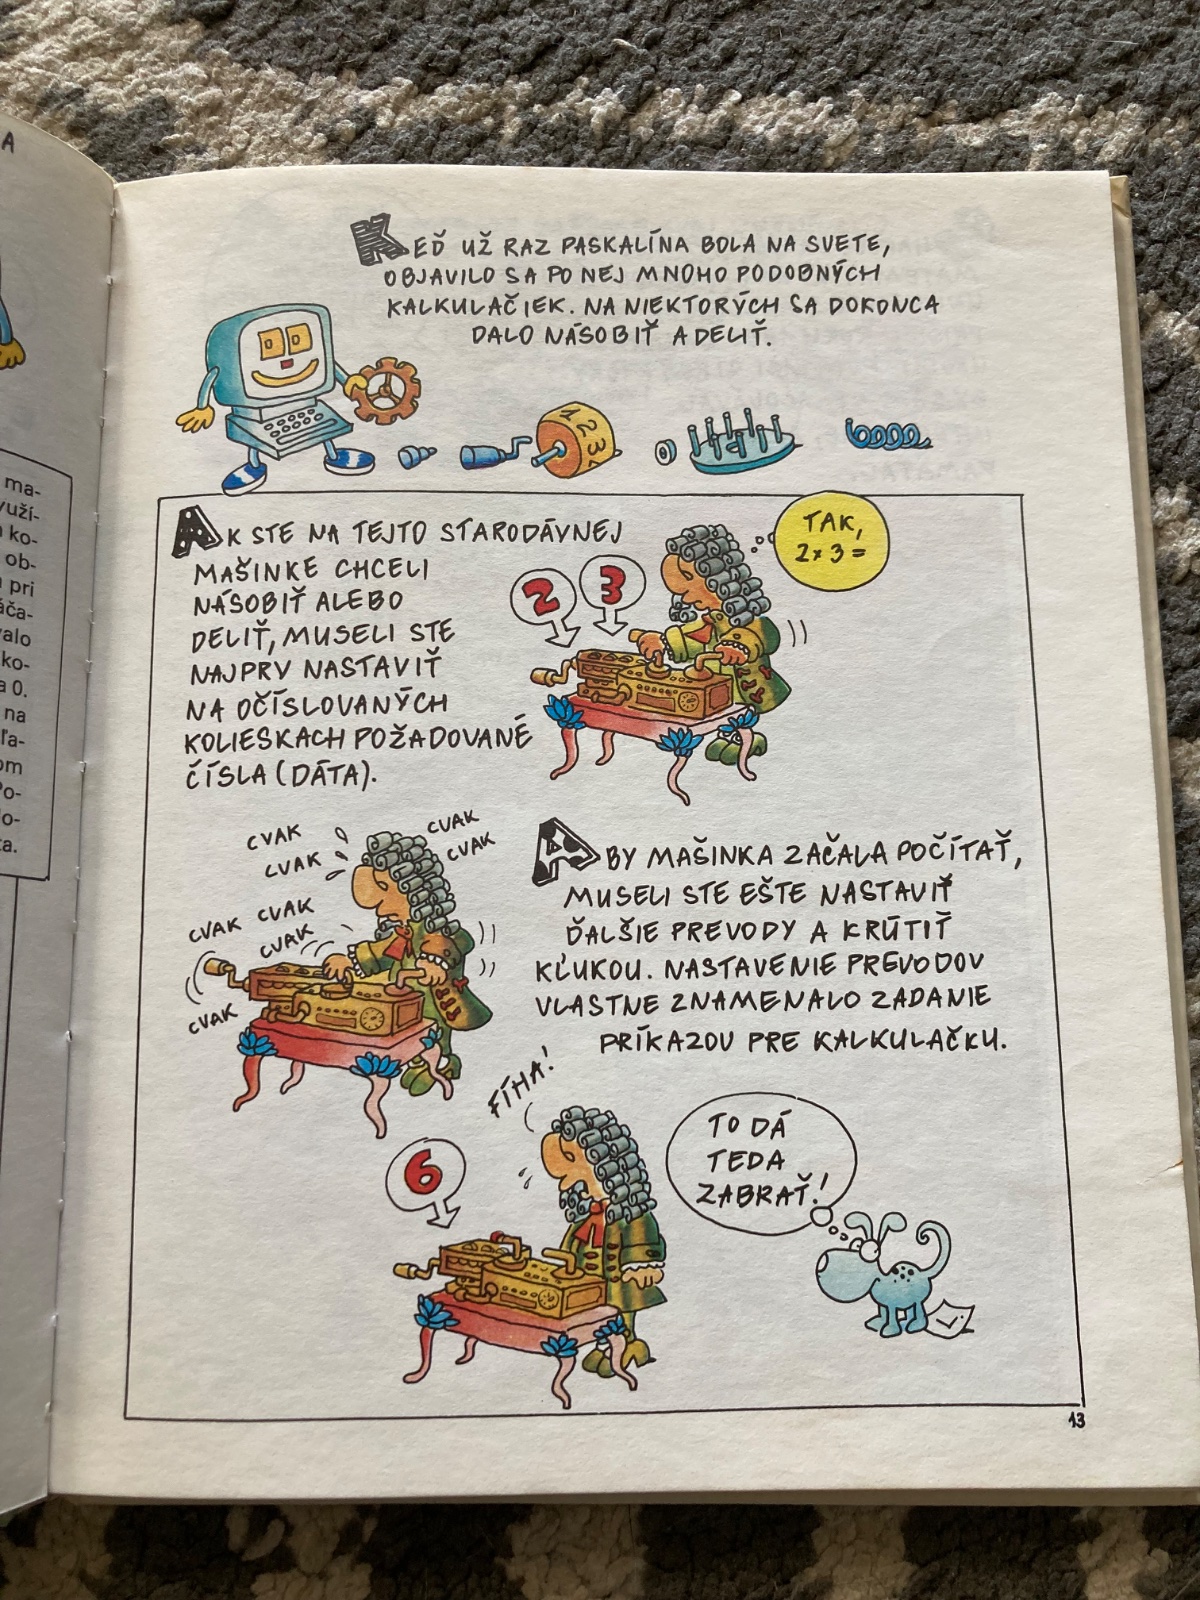 A
ma-
yuží-
ko-
ob-
pri
áča-
valo
ko-
a 0.
na
ľa-
om
Po-
lo-
ta.
KEĎ UŽ RAZ PASKALÍNA BOLA NA SVETE,
OBJAVILO SA PO NEJ MNOHO PODOBNÝCH
KALKULAČIEK. NA NIEKTORÝCH SA DOKONCA
DALO NÁSOBIŤ A DELIŤ.
1 2 3
AK STE NA TEJTO STARODÁVNEJ
MAŠINKE CHCELI
NÁSOBIŤ ALEBO
DELIŤ, MUSELI STE
NAJPRV NASTAVIŤ
NA OČÍSLOVANÝCH
KOLIESKACH POŽADOVANÉ
ČÍSLA (DÁTA).
2 3
TAK,
2x3=
CVAK
CVAK
CVAK
CVAK
CVAK
CVAK
CVAK
CVAK
ABY MAŠINKA ZAČALA POČÍTAŤ,
MUSELI STE EŠTE NASTAVIŤ
ĎALŠIE PREVODY A KRÚTIŤ
KĽUKOU. NASTAVENIE PREVODOV
VLASTNE ZNAMENALO ZADANIE
PRÍKAZOV PRE KALKULAČKU.
FÍHA!
6
TO DÁ
TEDA
ZABRAŤ!
13